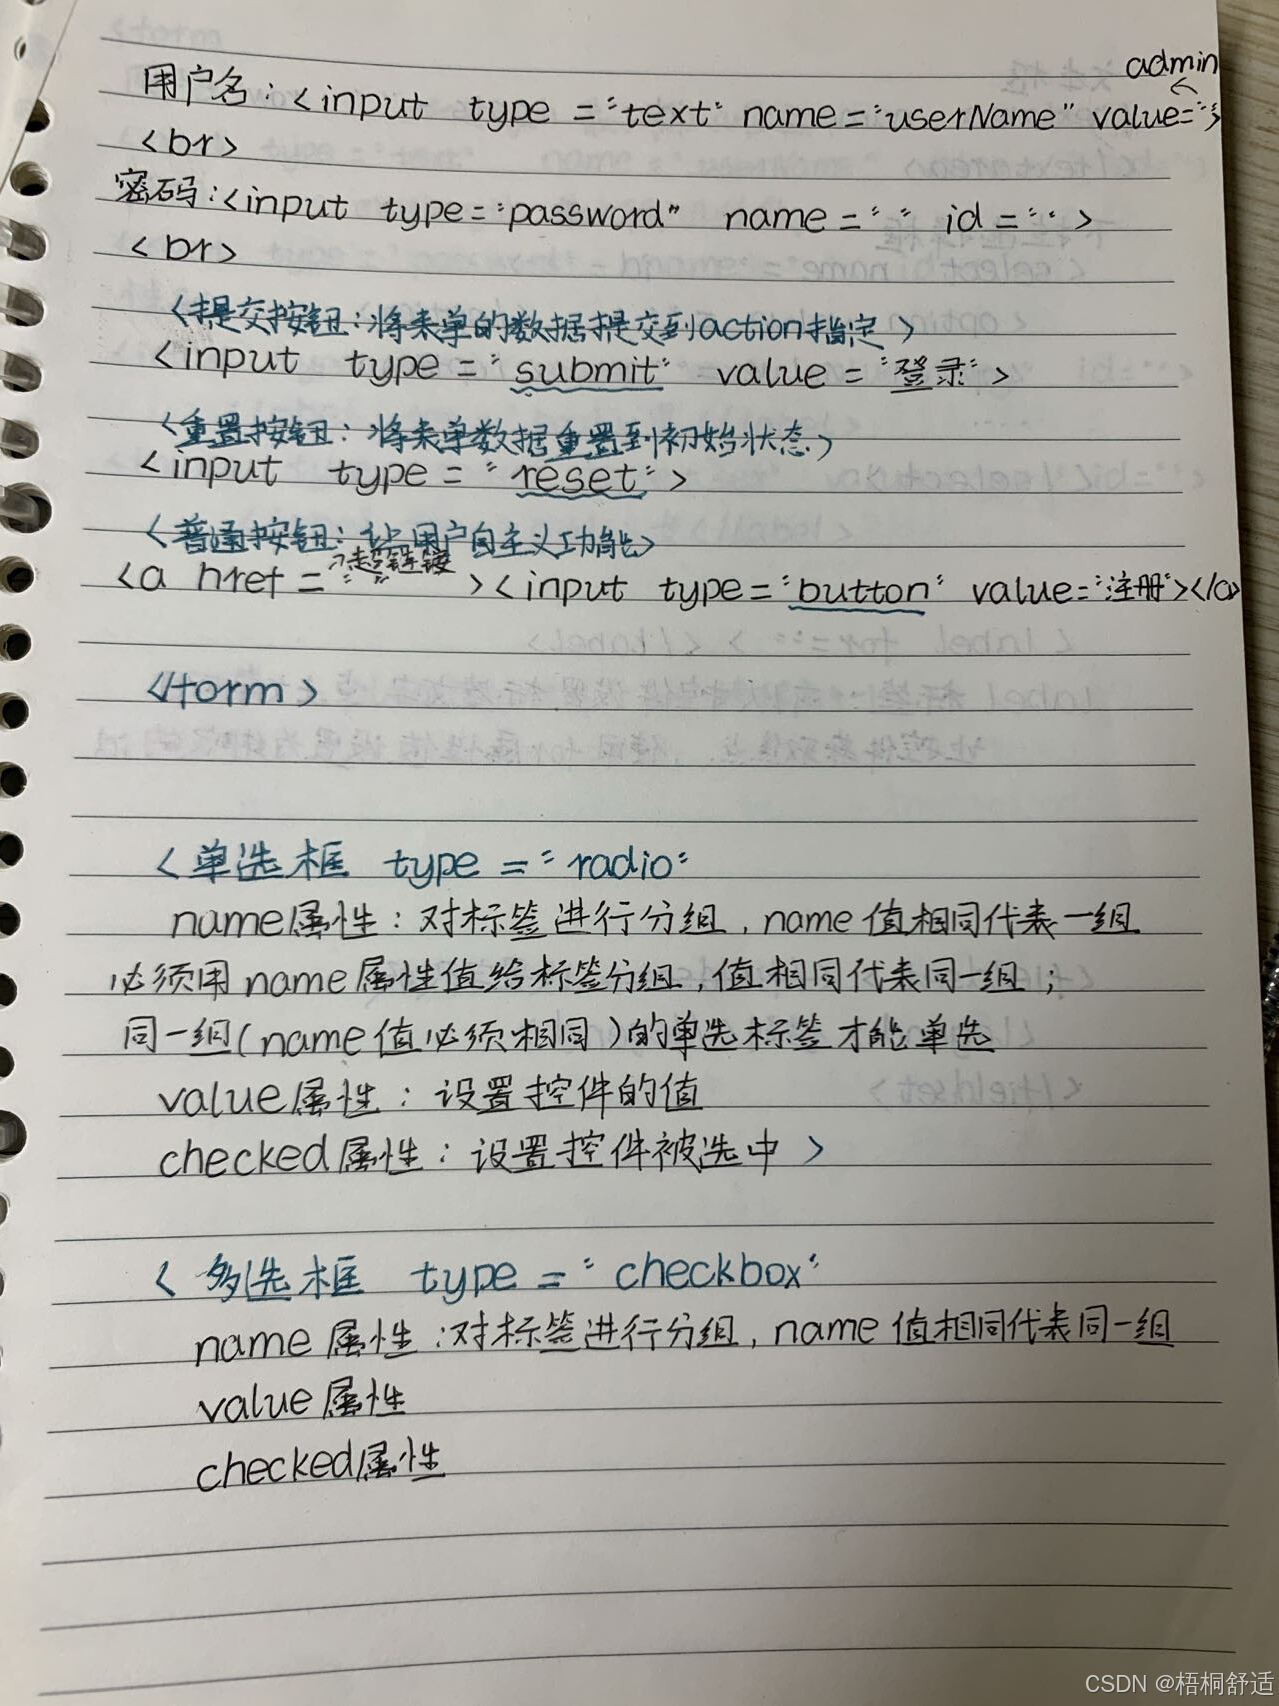 admin
用户名：<input type="text" name="userName" value="">
<br>
密码：<input type="password" name="" id="">
<br>
<提交按钮：将表单的数据提交到action指定>
<input type="submit" value="登录">
<重置按钮：将表单数据重置到初始状态>
<input type="reset">
<普通按钮：让用户自定义功能>
超链接
<a href=""><input type="button" value="注册"></a>
</form>
<单选框 type="radio"
name属性：对标签进行分组，name值相同代表一组
必须用name属性值给标签分组，值相同代表同一组；
同一组(name值必须相同)的单选标签才能单选
value属性：设置控件的值
checked属性：设置控件被选中>
<多选框 type="checkbox"
name属性：对标签进行分组，name值相同代表同一组
value属性
checked属性
CSDN @梧桐舒适